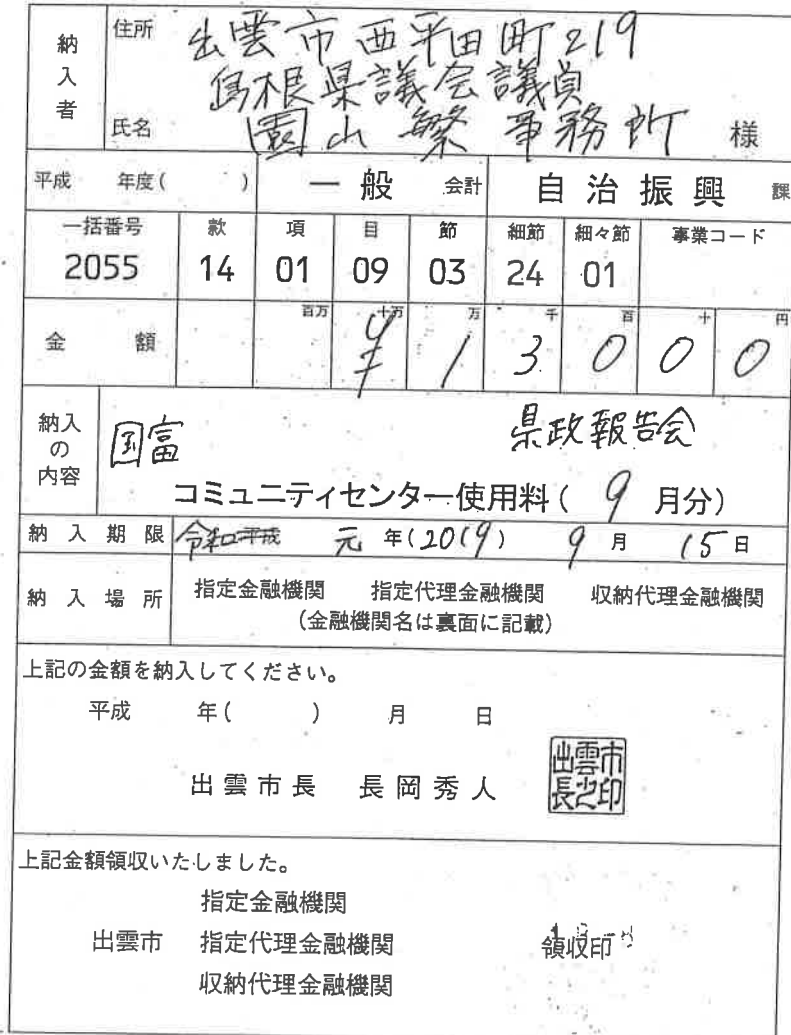 納入者
住所 出雲市西平田町219
島根県議会議員
氏名 園山繁事務所 様
平成 年度( ) 一般 会計 自治振興 課
一括番号 款 項 目 節 細節 細々節 事業コード
2055 14 01 09 03 24 01
百万 十万 万 千 百 十 円
金額 ¥13000
納入の内容
国富 県政報告会
コミュニティセンター使用料( 9 月分)
納入期限 令和 平成 元 年(2019) 9 月 15 日
納入場所 指定金融機関 指定代理金融機関 収納代理金融機関
(金融機関名は裏面に記載)
上記の金額を納入してください。
平成 年( ) 月 日
出雲市長 長岡秀人
出雲市長之印
上記金額領収いたしました。
指定金融機関
出雲市 指定代理金融機関 領収印
収納代理金融機関